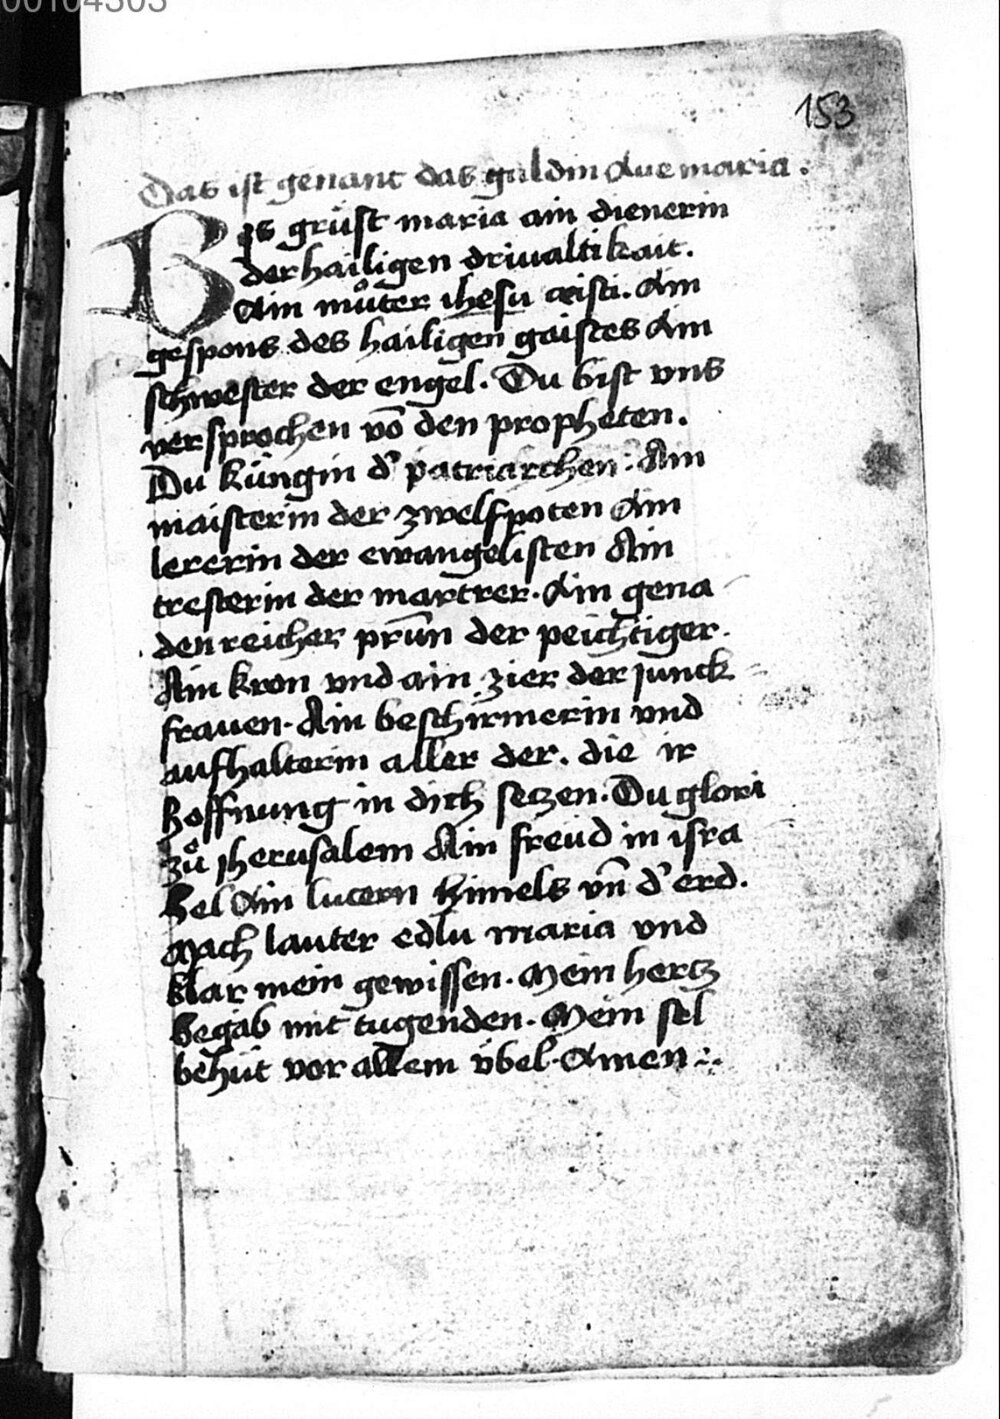 00104303
153
Das ist genant das guldin Aue maria.
Bis grüst maria ain dienerin
der hailigen driualtikait.
Ain muͦter ihesu cristi. Ain
gespons des hailigen gaistes Ain
schwester der engel. Du bist vns
versprochen vō den propheten.
Du küngin d' patriarchen. Ain
maisterin der zwelfpoten Ain
lererin der ewangelisten Ain
tresterin der martrer. Ain gena
den reicher prun̄ der peichtiger.
Ain kron vnd ain zier der junck
frauen. Ain beschirmerin vnd
aufhalterin aller der. die ir
hoffnung in dich setzen. Du glori
zuͦ jherusalem Ain freüd in isra
hel Ain lucern himels vn̄ d' erd.
Mach lauter edlu maria vnd
klar mein gewissen. Mein hertz
begab mit tugenden. Mein sel
behüt vor allem v̈bel. Amen